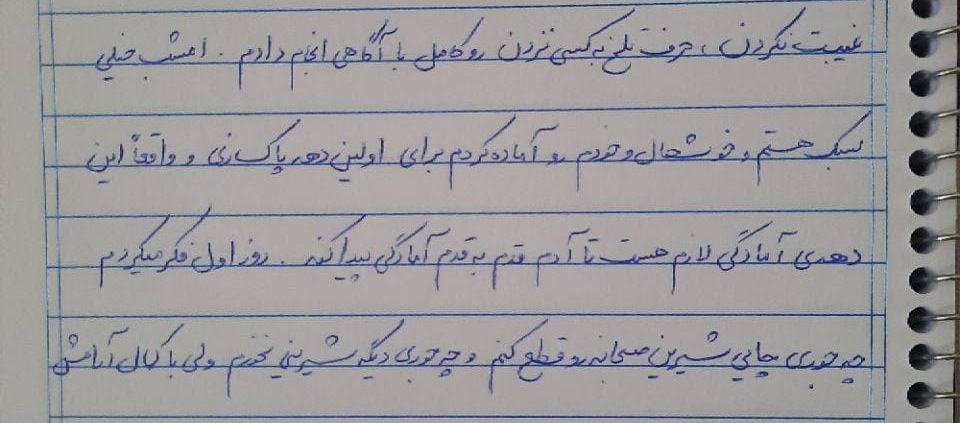 غیبت نکردن ، حرف تلخ به کسی نزدن رو کامل با آگاهی انجام دادم . امشب خیلی
سبک هستم و خوشحال و خودم رو آماده کردم برای اولین دهه پاکسازی و واقعاً این
دهه‌ی آمادگی لازم هست تا آدم قدم به قدم آمادگی پیدا کنه . روز اول فکر میکردم
چه جوری چایی شیرین صبحانه رو قطع کنم و چه جوری دیگه شیرینی نخورم ولی با کمال آرامش